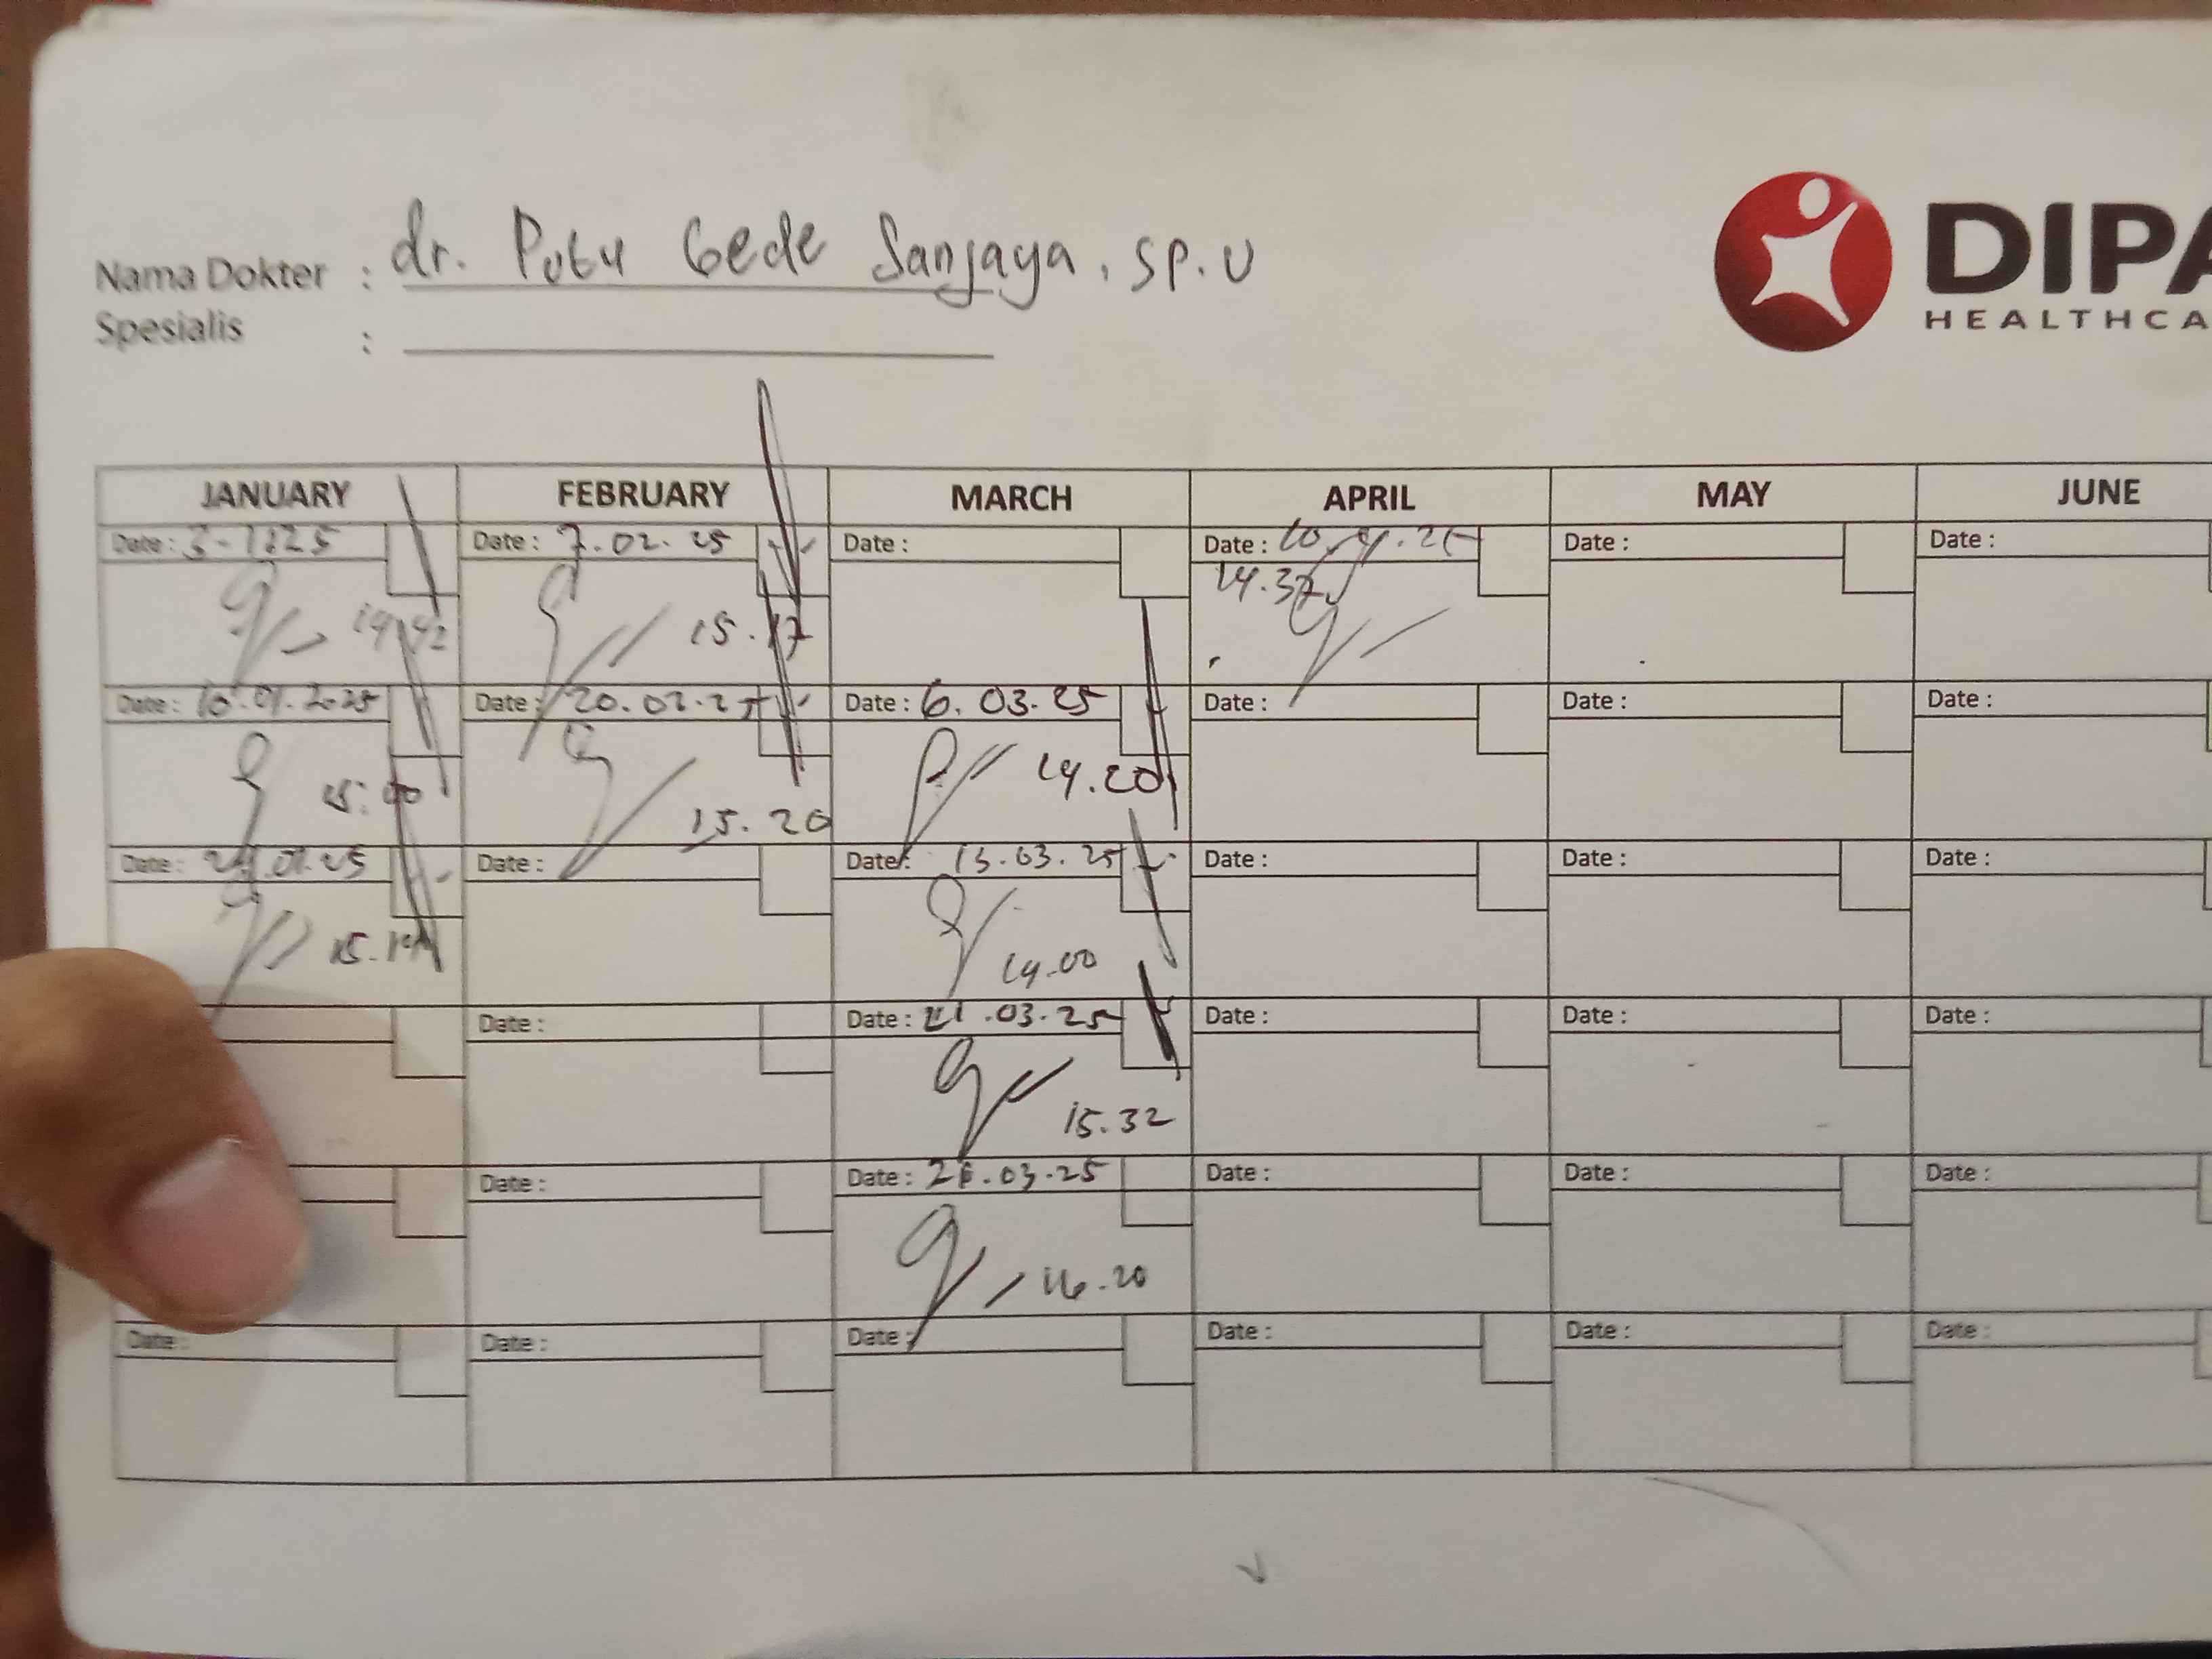 Nama Dokter : dr. Putu Gede Sanjaya, Sp. U
Spesialis :
DIPA
HEALTHCA
JANUARY FEBRUARY MARCH APRIL MAY JUNE
Date : 3-1-25 Date : 7.02.25 Date : Date : 10. 4. 25 Date : Date :
14.37
14.42 15.17
Date : 10.01.2025 Date : 20.02.25 Date : 6.03.25 Date : Date : Date :
15:00 15.20 14.20
Date : 01.25 Date : Date : 13.03.25 Date : Date : Date :
14.00
Date : Date : 21.03.25 Date : Date : Date :
15.32
Date : Date : 03.25 Date : Date : Date :
16.20
Date : Date : Date : Date : Date : Date :